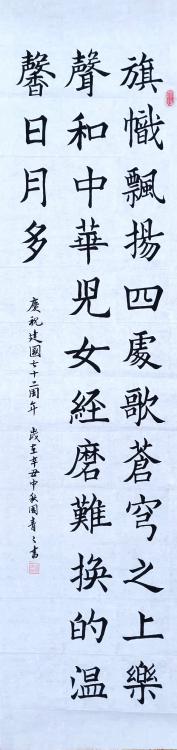 旗幟飄揚四處歌蒼穹之上樂
聲和中華兒女經磨難換的溫
馨日月多
慶祝建國七十二周年 歲在辛丑中秋國青之書